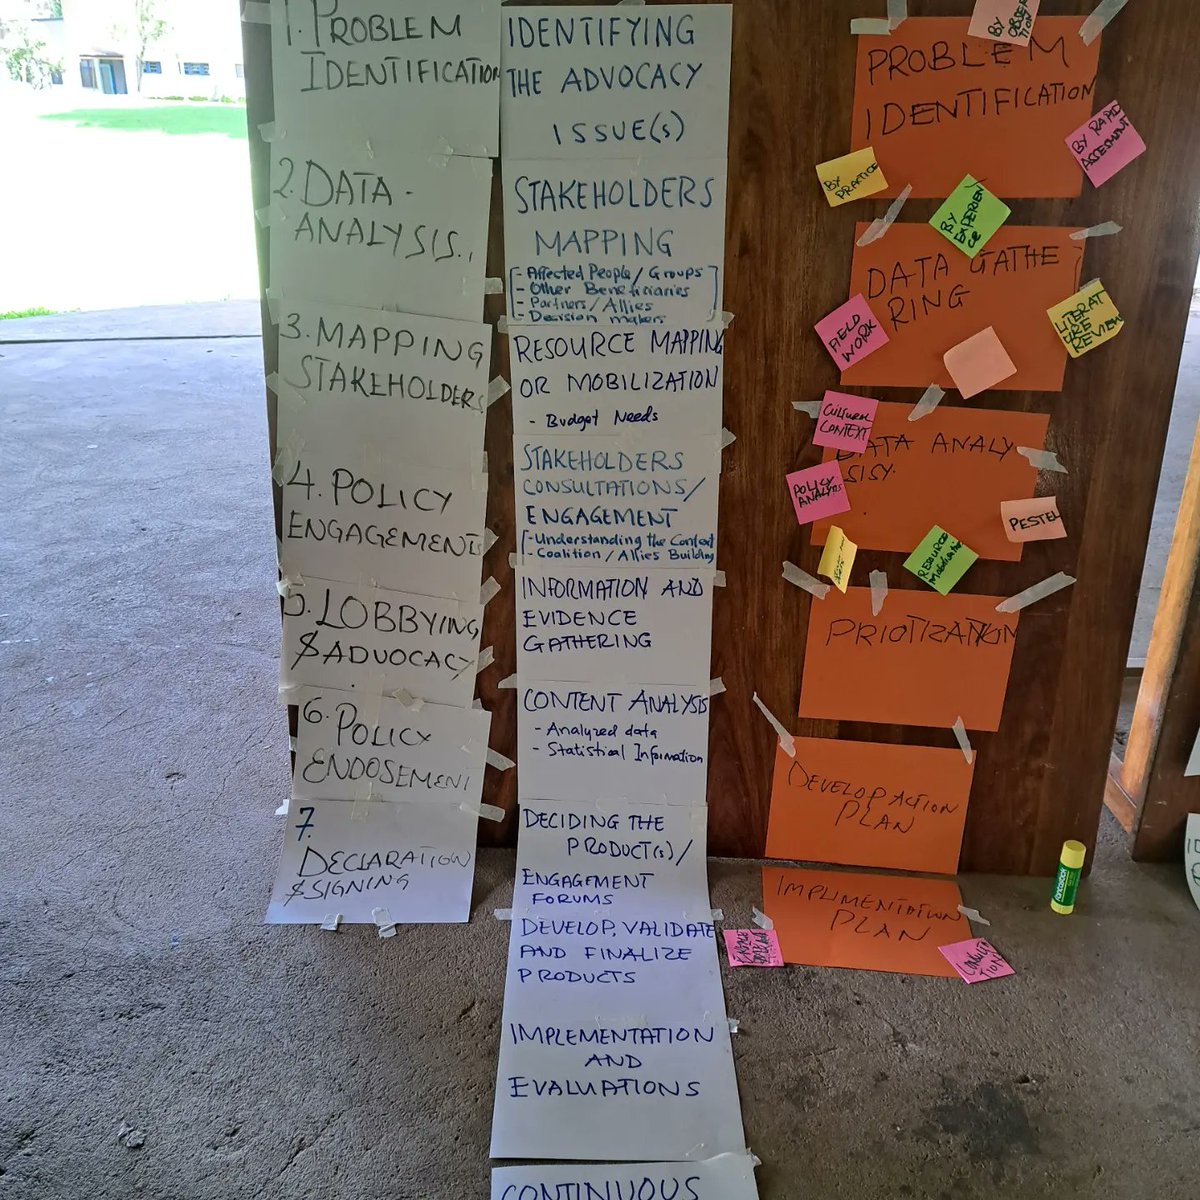 1. PROBLEM
IDENTIFICATION
2. DATA -
ANALYSIS..
3. MAPPING
STAKEHOLDERS
4. POLICY
ENGAGEMENTS
5. LOBBYING
& ADVOCACY
6. POLICY
ENDOSEMENT
7.
DECLARATION
& SIGNING
IDENTIFYING
THE ADVOCACY
ISSUE(s)
STAKEHOLDERS
MAPPING
- Affected People/Groups
- Other Beneficiaries
- Partners/Allies
- Decision makers
RESOURCE MAPPING
OR MOBILIZATION
- Budget Needs
STAKEHOLDERS
CONSULTATIONS/
ENGAGEMENT
- Understanding the Context
- Coalition/Allies Building
INFORMATION AND
EVIDENCE
GATHERING
CONTENT ANALYSIS
- Analyzed data
- Statistical Information
DECIDING THE
PRODUCT(s)/
ENGAGEMENT
FORUMS
DEVELOP, VALIDATE
AND FINALIZE
PRODUCTS
IMPLEMENTATION
AND
EVALUATIONS
CONTINUOUS
BY
OBSERVA
TION
PROBLEM
IDENTIFICATION
BY RAPID
ASSESMENT
BY
PRACTICE
BY
EXPERIEN
CE
DATA GATHE
RING
FIELD
WORK
LITERAT
URE
REVIEW
CULTURAL
CONTEXT
DATA ANALY
SISY.
POLICY
ANALYSIS
PESTEL
RESOURCE
Mobilization
PRIOTIZATION
DEVELOP ACTION
PLAN
IMPLIMENTATION
PLAN
fantastick